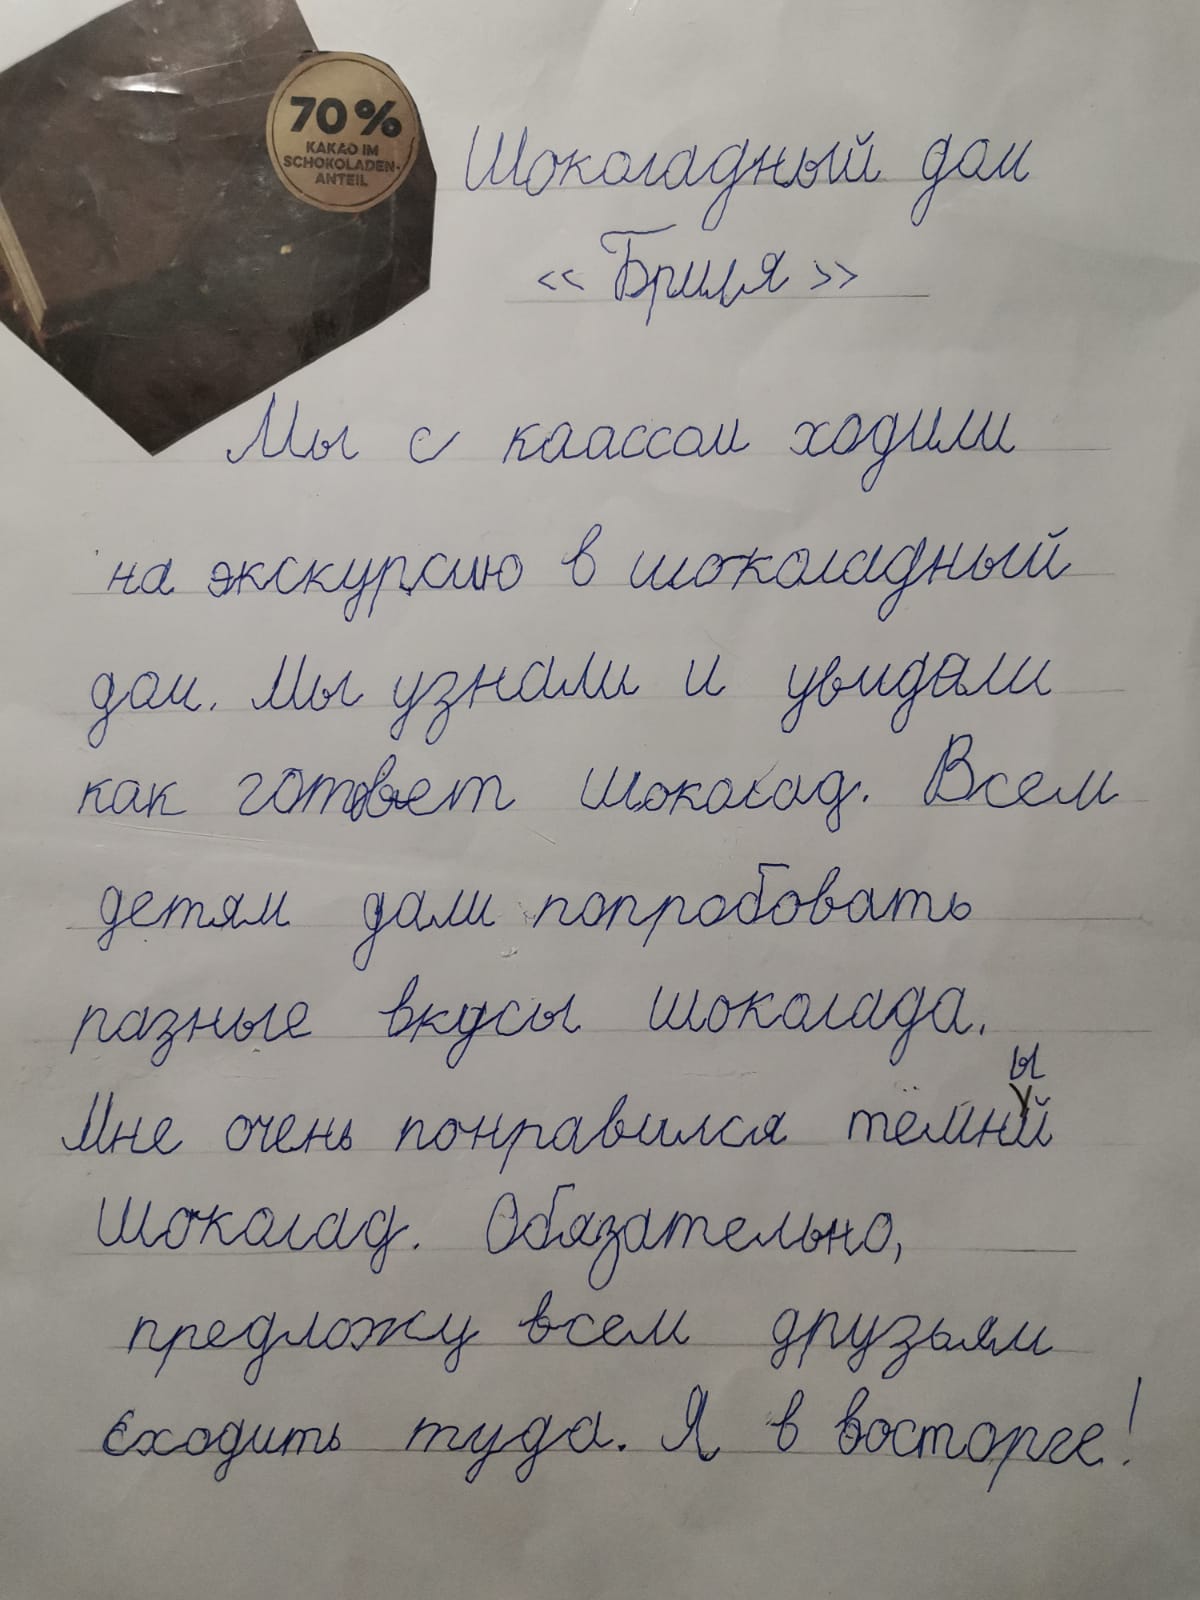 70%
KAKAO IM
SCHOKOLADEN-
ANTEIL
Шоколадный дом
«Бриля»
Мы с классом ходили
на экскурсию в шоколадный
дом. Мы узнали и увидали
как готовет шоколад. Всем
детям дали попробовать
разные вкусы шоколада.
Мне очень понравился тёмный
шоколад. Обязательно,
предложу всем друзьям
сходить туда. Я в восторге!